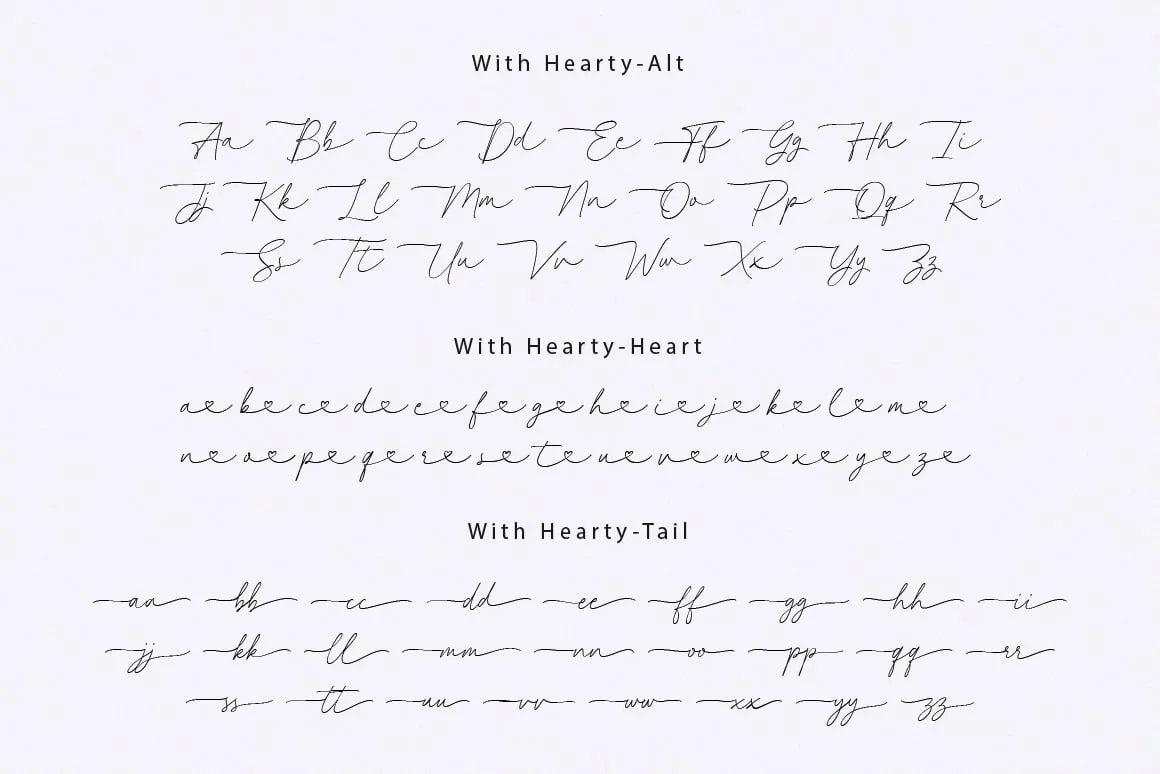 With Hearty-Alt
Aa Bb Cc Dd Ee Ff Gg Hh Ii
Jj Kk Ll Mm Nn Oo Pp Qq Rr
Ss Tt Uu Vv Ww Xx Yy Zz
With Hearty-Heart
a b c d e f g h i j k l m
n o p q r s t u v w x y z
With Hearty-Tail
aa bb cc dd ee ff gg hh ii
jj kk ll mm nn oo pp qq rr
ss tt uu vv ww xx yy zz